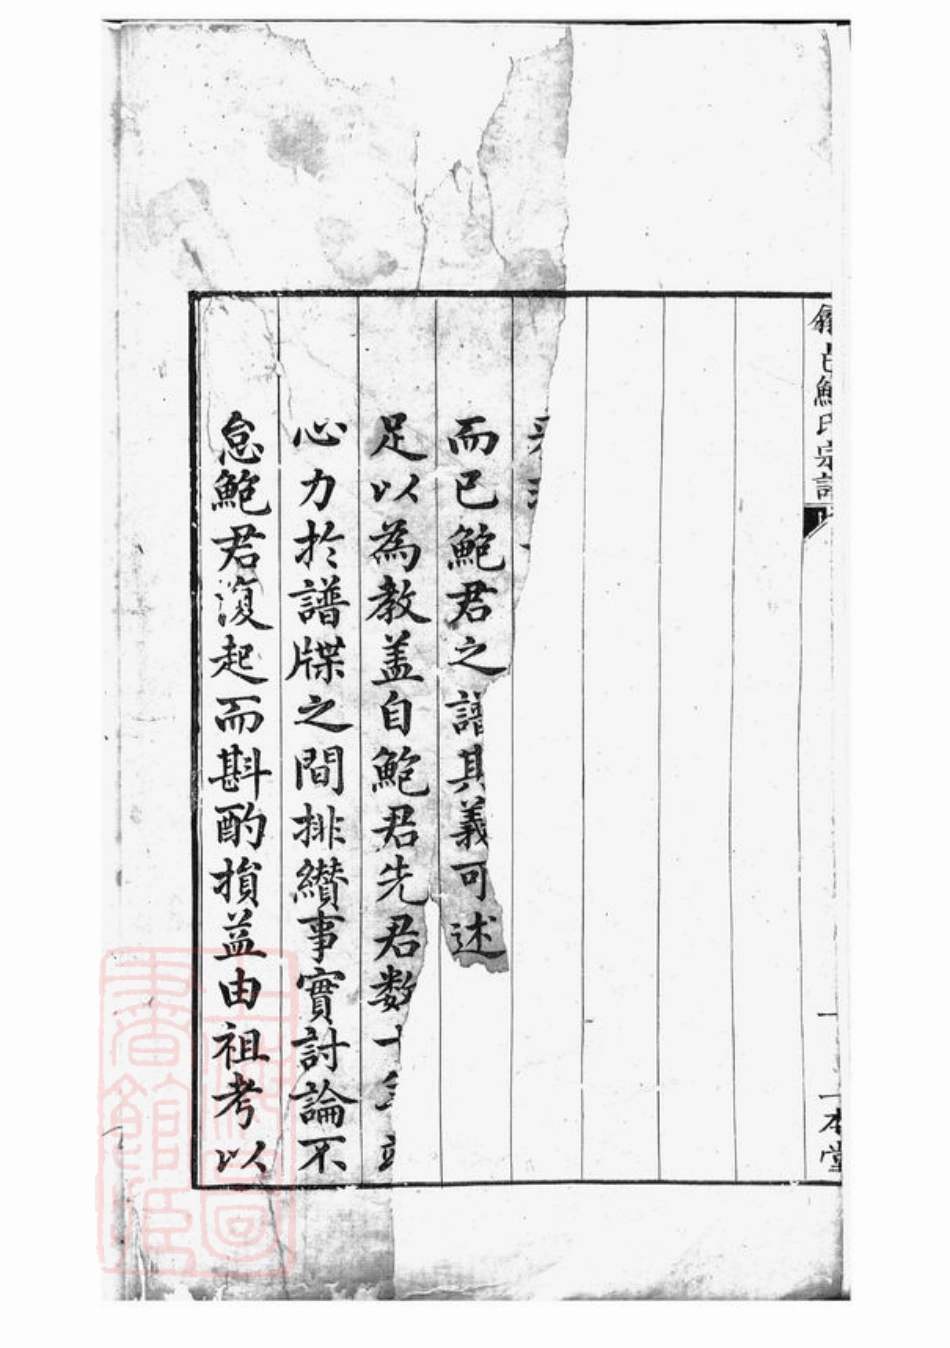 鮑氏宗譜
一
一本堂
而已鮑君之譜其義可述
足以為教盖自鮑君先君数十
心力於譜牒之間排纘事實討論不
怠鮑君復起而斟酌損益由祖考以